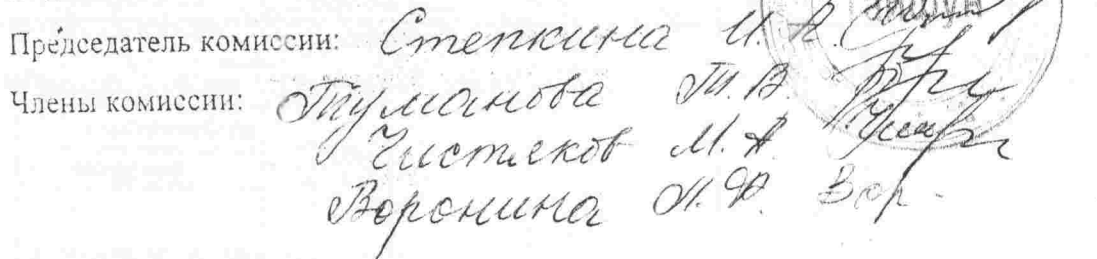 Председатель комиссии: Степкина И. А.
Члены комиссии: Туманова Т. В.
Чистяков М. А.
Воронина Ф. Вор.